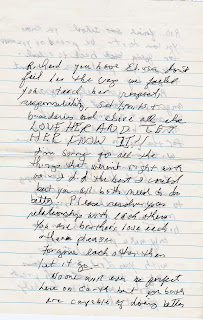 Richard you have Elissa don't
fail her the way we failed
you teach her respect,
responsibility, set limits &
boundaries and above all else
LOVE HER AND LET
HER KNOW IT!!
I'm sorry for all the
things that weren't right with
us - I did the best I could
but you all both need to do
better. Please resolve your
relationship with each other
You are brothers love each
other please
forgive each other when
let it go
No one will ever be perfect
here on Earth but you both
are capable of doing better